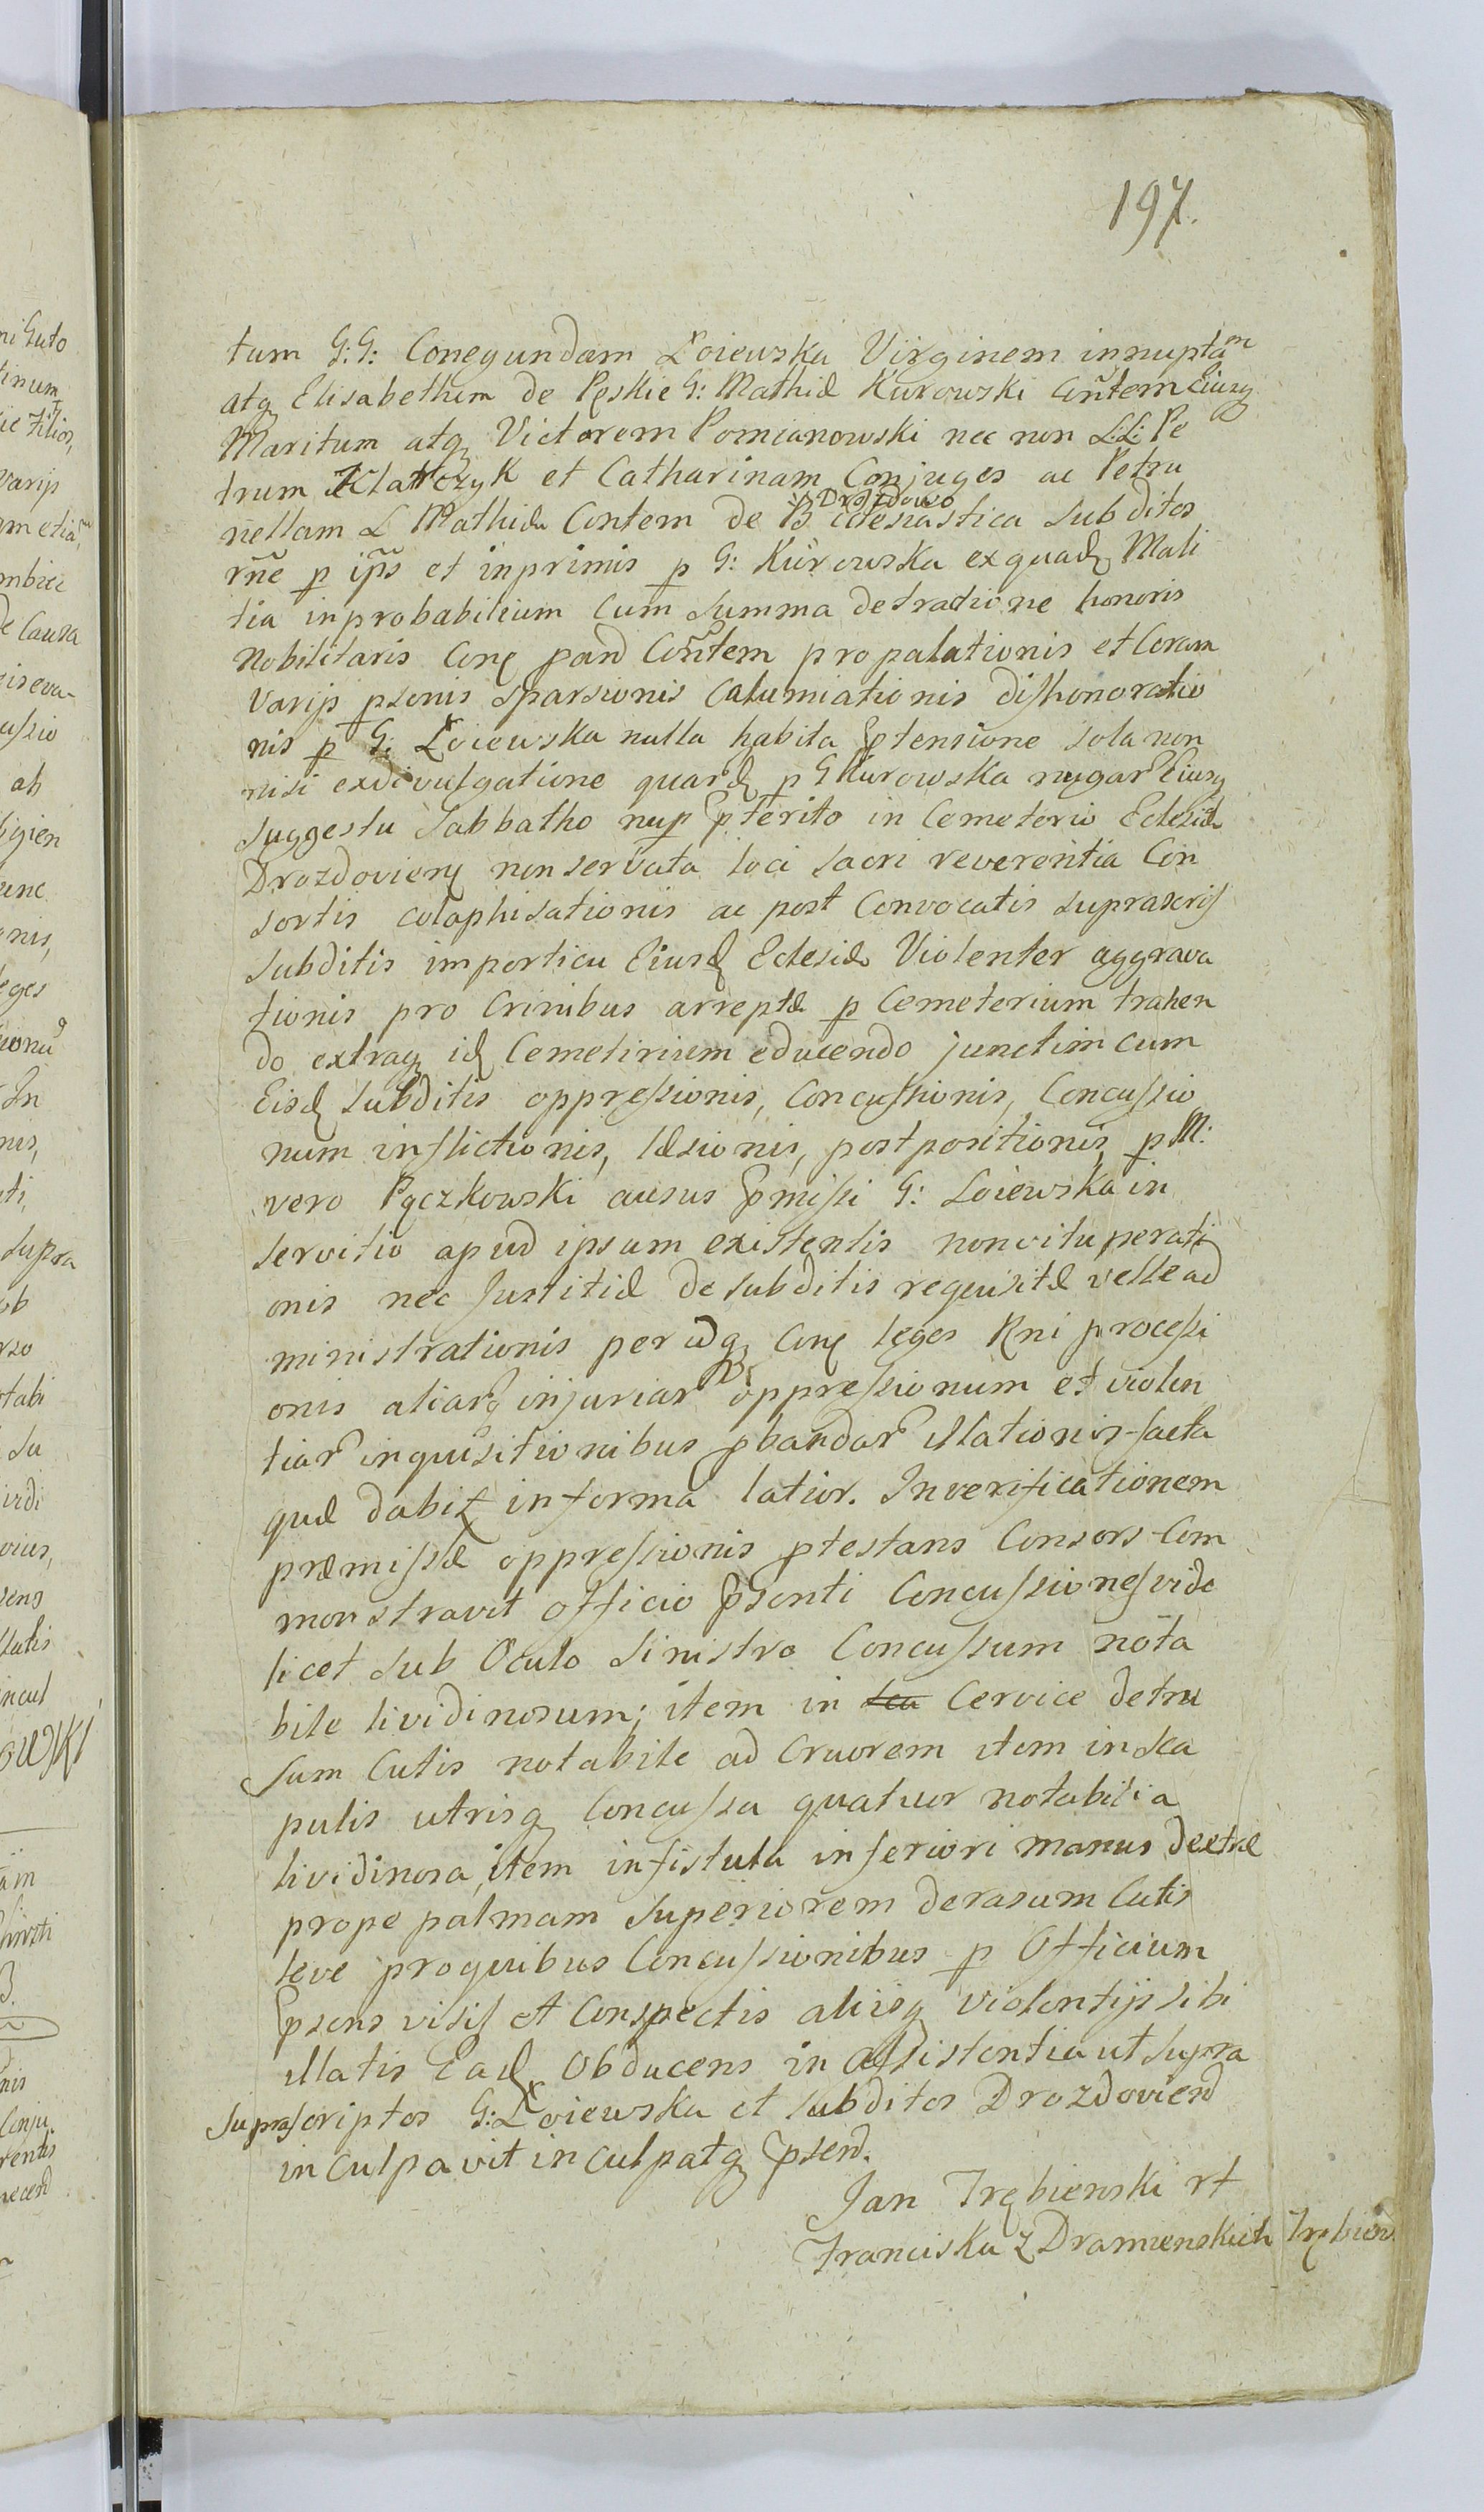 197.
tum G: G: Conegundam Łoiewska Virginem innuptam
atq Elisabetham de Pęskie G: Mathiæ Kurowski Contem Eiusq
Maritum atq Victorem Pomianowski nec non L:L: Pe
trum Klatczyk et Catharinam Conjuges ac Petru
nellam L Mathiæ Contem de B Drozdowo Eclesiastica Subditos
rñe p ips et inprimis p G: Kurowska ex quad Mali
tia inprobabilium Cum Summa detractione honoris
Nobilitaris Conq pand Contem propalationis et Coram
Varijs psonis Sparsionis Calumiationis dishonoratio
nis p G: Łoiewska nulla habita Ptensione sola non
nisi ex divulgatione quard p G Kurowska nugar Eiusq
Suggestu Sabbatho nup Pterito in Cemeterio Eclesiæ
Drozdovienq non servata loci Sacri reverentia Con
sortis colaphisationis ac post Convocatis Suprascris
Subditis im porticu Eiusd Eclesiæ Violenter aggrava
tionis pro Crinibus arreptæ p Cemeterium trahen
do extraq id Cemetirium educendo junctim cum
Eisd Subditis oppressionis, Concussionis, Concussio
num inflictionis, læsionis, postpositionis, p M:
vero Pączkowski ausus Pmissi G: Loiewska in
servitio apud ipsum existentis non vituperati
onis nec Justitiæ de Subditis requisitæ velle ad
ministrationis per idq Conq leges Rni processi
onis aliarq injuriar oppressionum et violen
tiar inquisitionibus pbandar Illationis facta
quæ dabit in forma latior. In verificationem
præmissæ oppressionis ptestans Consors Com
monstravit Officio Psenti Concussiones vide
licet Sub Oculo Sinistro Concussum nota
bile lividinosum; item in <del>sca</del> Cervice detru
sum Cutis notabile ad Cruorem item in Sca
pulis utrisq Concussa quatuor notabilia
lividinosa, item in fistula inferiori manus dextræ
prope palmam Superiorem derasum Cutis
leve pro quibus Concussionibus p Officium
Psens visis et Conspectis alijsq violentijs sibi
illatis Ead Obducens in assistentia ut Supra
Suprascriptos G: Łoiewska et Subditos Drozdoviend
inculpavit inculpatq Psend.
Jan Trębienski rt
Franciska z Dramienskich Trębien.